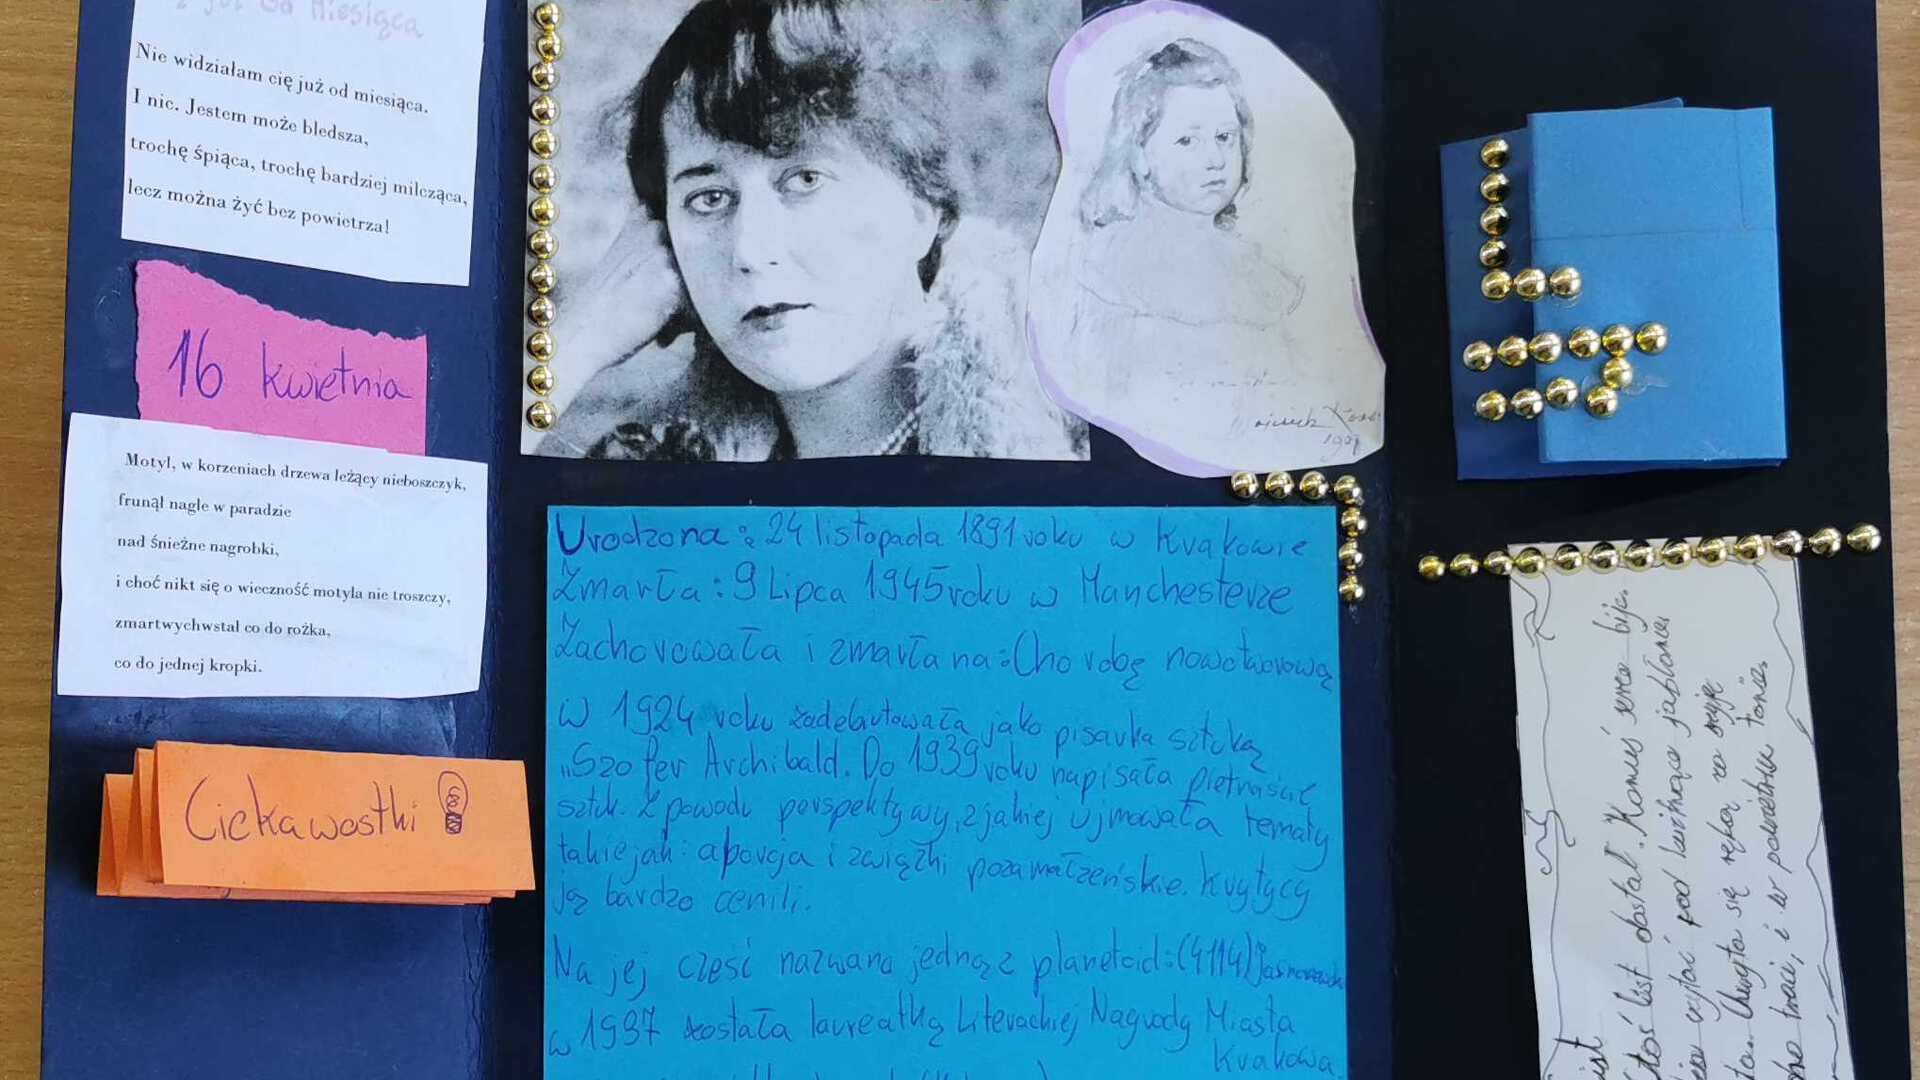 już od miesiąca
Nie widziałam cię już od miesiąca.
I nic. Jestem może bledsza,
trochę śpiąca, trochę bardziej milcząca,
lecz można żyć bez powietrza!
16 kwietnia
Motyl, w korzeniach drzewa leżący nieboszczyk,
frunął nagle w paradzie
nad śnieżne nagrobki,
i choć nikt się o wieczność motyla nie troszczy,
zmartwychwstał co do rożka,
co do jednej kropki.
Ciekawostki
1901
Urodzona: 24 listopada 1891 roku w Krakowie
Zmarła: 9 Lipca 1945 roku w Manchesterze
Zachorowała i zmarła na: Chorobę nowotworową
W 1924 roku zadebiutowała jako pisarka sztuką
"Szofer Archibald. Do 1939 roku napisała piętnaście
sztuk. Z powodu perspektywy, z jakiej ujmowała tematy
takie jak: aborcja i związki pozamałżeńskie. Krytycy
ją bardzo cenili.
Na jej cześć nazwano jedną z planetoid: (4114) Jasnorzewska
w 1937 została laureatką Literackiej Nagrody Miasta
Krakowa.
ist
toś list dostał. Komuś serce bije.
czytać pod kwitnące jabłonie.
Chwyta się ręką za szyję
traci, i w powietrzu tonie.